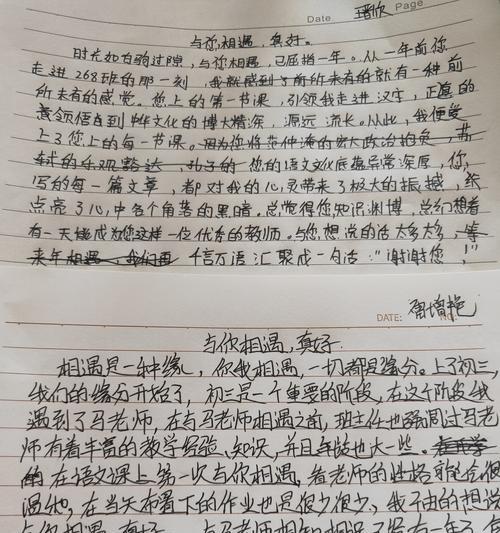 Date Page
与你相遇，真好。
时光如白驹过隙，与你相遇，已屈指一年。从一年前你
走进268班的那一刻，我就感到了前所未有的就有一种前
所未有的感觉。您上的第一节课，引领我走进汉字，正是的
领悟到中华文化的博大精深，源远流长。从此，我便爱
上了您上的每一节课。因为您将范仲淹的宏大政治抱负，苏
轼的乐观豁达，孔子的 您的语文文化底蕴异常深厚，你
写的每一篇文章，都对我的心灵带来了极大的振撼，
点亮了心中各个角落的黑暗。总觉得您知识渊博，总幻想着
有一天能成为您这样一位优秀的教师。与您想说的话太多太多，等
来年相遇，我们再 千言万语汇聚成一句话："谢谢您！"
DATE:
与你相遇，真好
相遇是一种缘，你我相遇，一切都是缘分。上了初三，
我们的缘分开始了，初三是一个重要的阶段，在这个阶段我
遇到了马老师，在与马老师相遇之前，班主任也强调过马老
师有着丰富的教学经验、知识，并且年龄也大一些。
在语文课上第一次与你相遇，看老师的性格就会很
温和，在当天布置下的作业也是很少很少，我不由的想说
与你相遇，真好